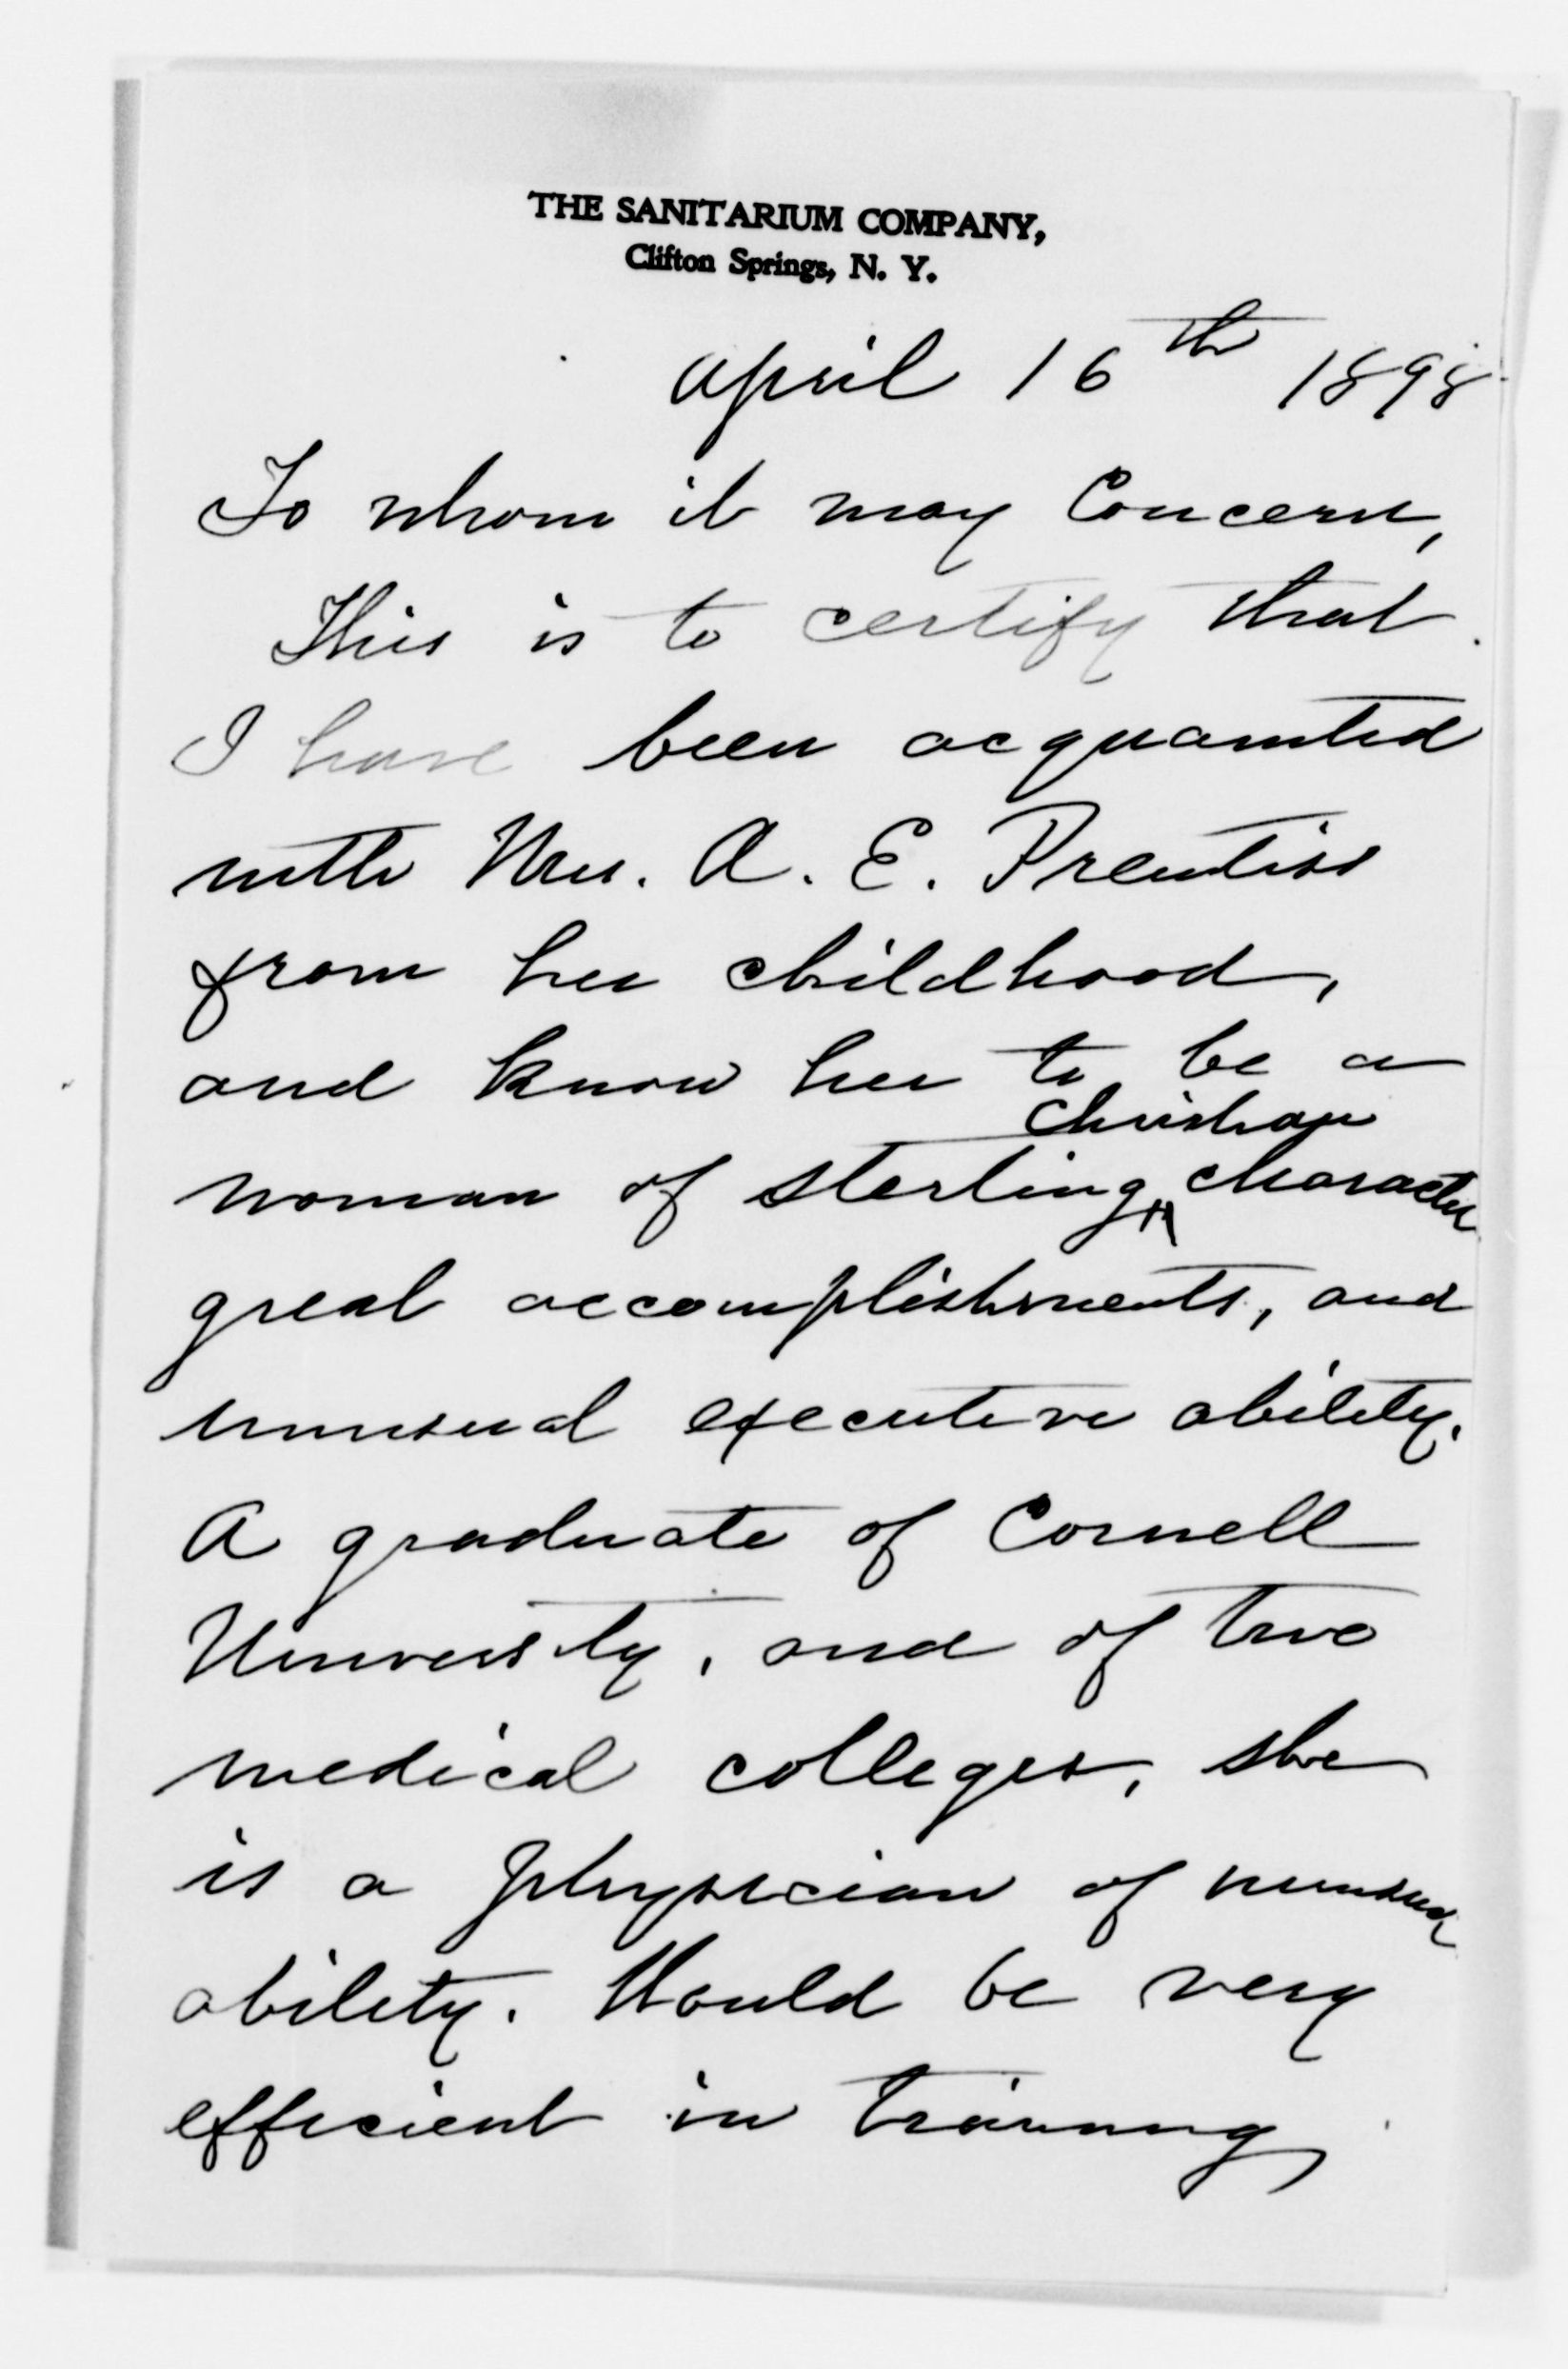 THE SANITARIUM COMPANY,
Clifton Springs, N. Y.
April 16th 1898
To whom it may Concern,
This is to certify that
I have been acquainted
with Mrs. A. E. Prentiss
from her childhood,
and know her to be a
Christian
woman of sterling character
great accomplishments, and
unusual executive ability.
A graduate of Cornell
University, and of two
medical colleges, she
is a physician of unusual
ability. Would be very
efficient in training